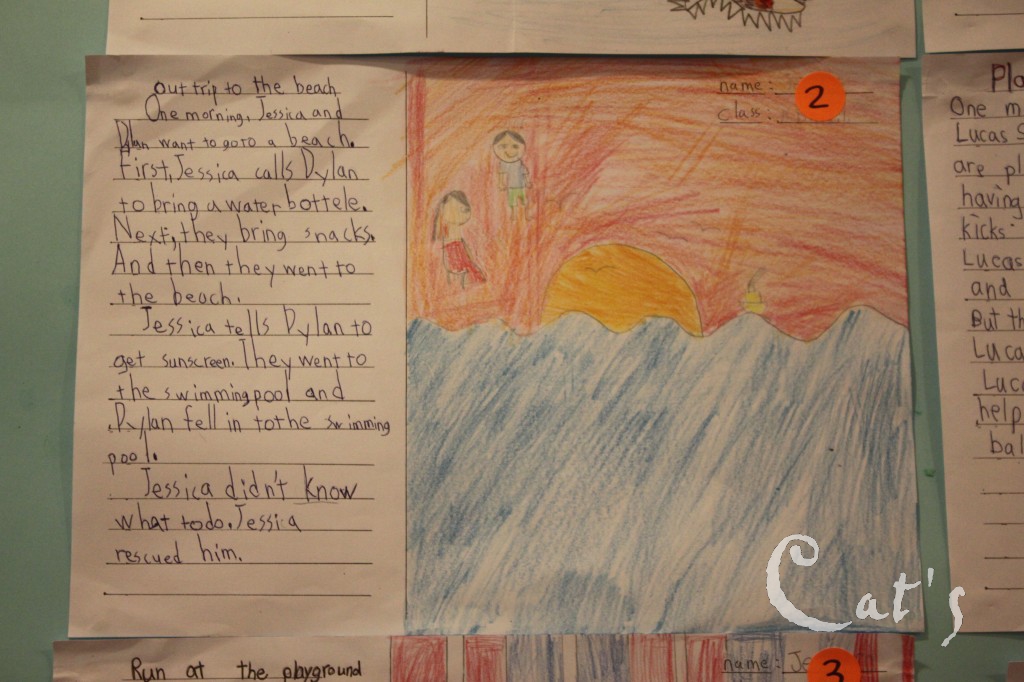 out trip to the beach
One morning, Jessica and
Dylan want to go to a beach.
First, Jessica calls Dylan
to bring a water bottele.
Next, they bring snacks.
And then they went to
the beach.
Jessica tells Dylan to
get sunscreen. They went to
the swimming pool and
Dylan fell in to the swimming
pool.
Jessica didn't know
what to do. Jessica
rescued him.
name:
class:
2
One m
Lucas S
are pl
having
kicks
Lucas
and
But th
Luca
Luc
help
bal
Run at the playground
name: Je
3
Cat's